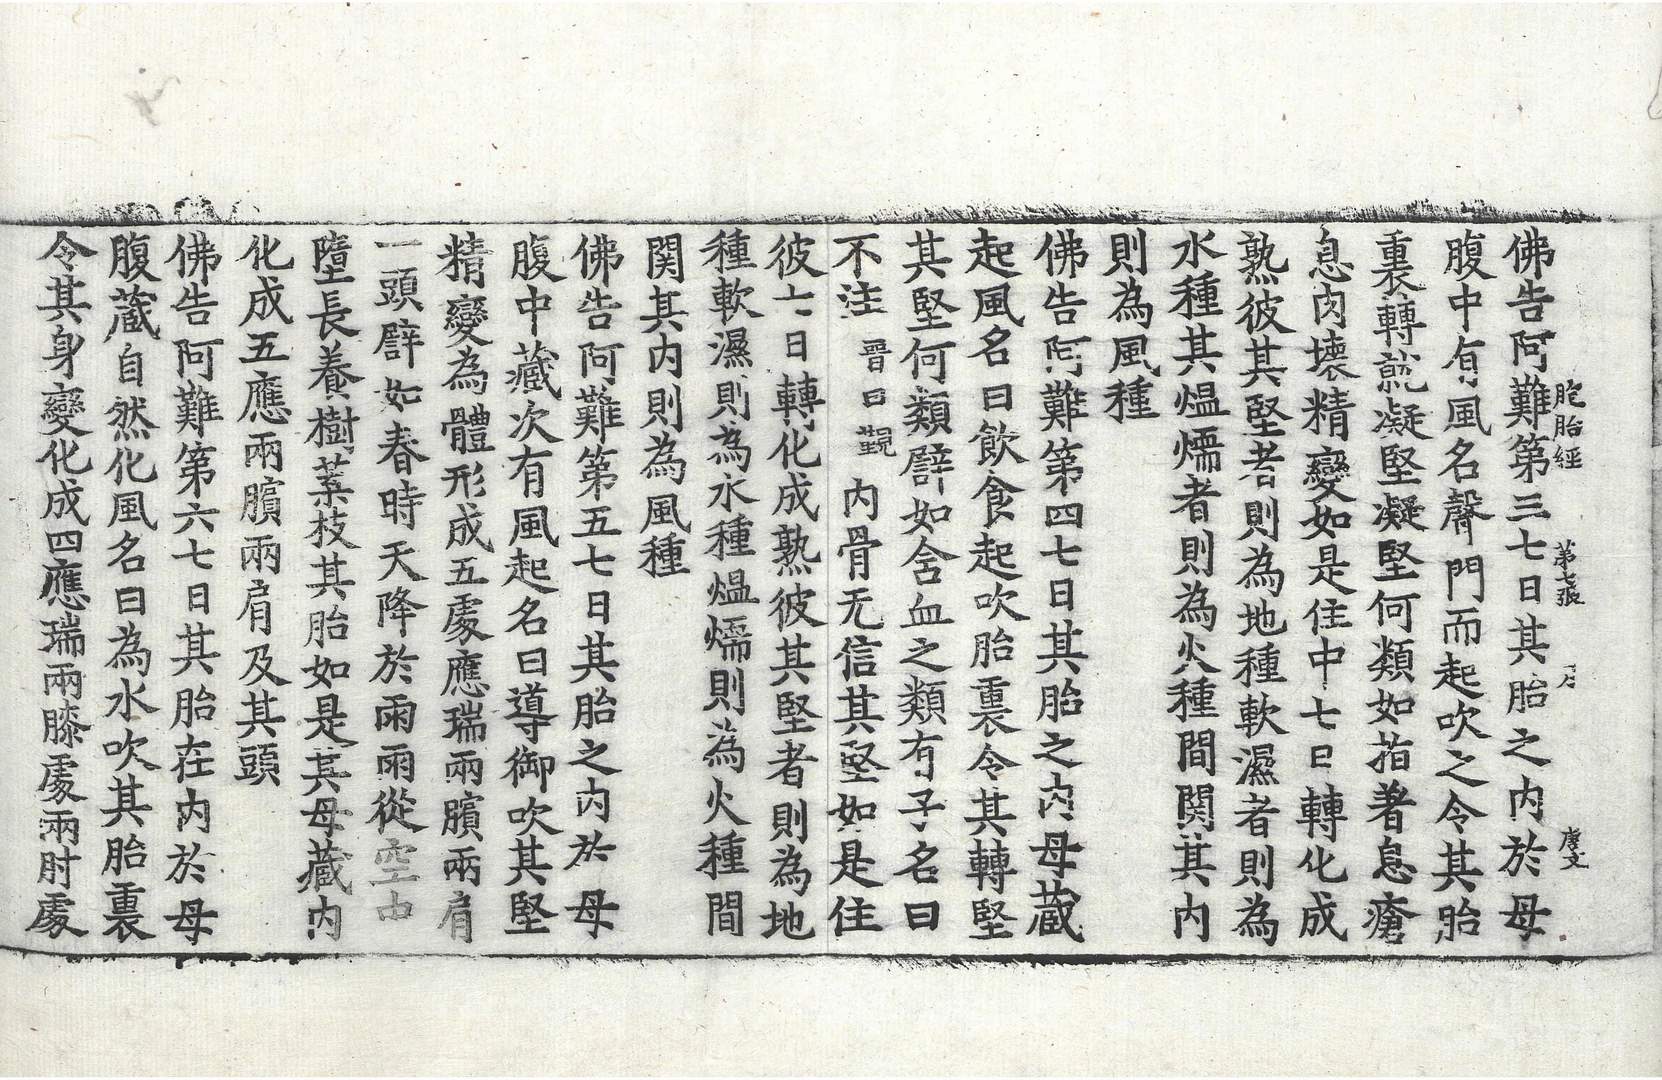 胞胎經 第七張 唐文
佛告阿難第三七日其胎之內於母
腹中有風名聲門而起吹之令其胎
裏轉就凝堅凝堅何類如指著息瘡
息肉壞精變如是住中七日轉化成
熟彼其堅者則為地種軟濕者則為
水種其熅燸者則為火種間関其內
則為風種
佛告阿難第四七日其胎之內母藏
起風名曰飲食起吹胎裏令其轉堅
其堅何類譬如含血之類有子名曰
不注 晉曰覲 內骨无信其堅如是住
彼七日轉化成熟彼其堅者則為地
種軟濕則為水種熅燸則為火種間
関其內則為風種
佛告阿難第五七日其胎之內於母
腹中藏次有風起名曰導御吹其堅
精變為體形成五處應瑞兩臏兩肩
一頭譬如春時天降於雨雨從空中
墮長養樹葉枝其胎如是其母藏內
化成五應兩臏兩肩及其頭
佛告阿難第六七日其胎在內於母
腹藏自然化風名曰為水吹其胎裏
令其身變化成四應瑞兩膝處兩肘處